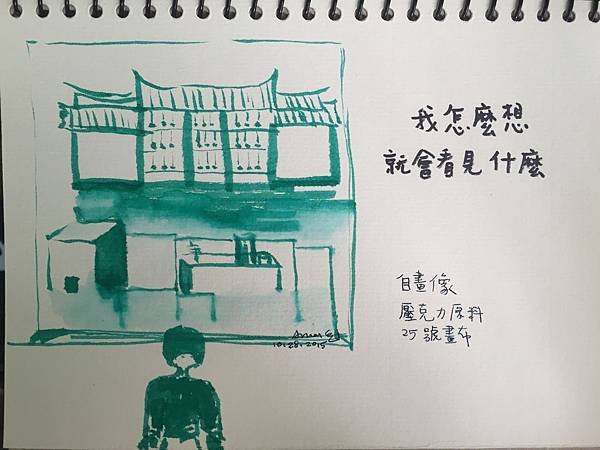 我怎麼想
就會看見什麼
自畫像
壓克力原料
25號畫布
10.28.2015